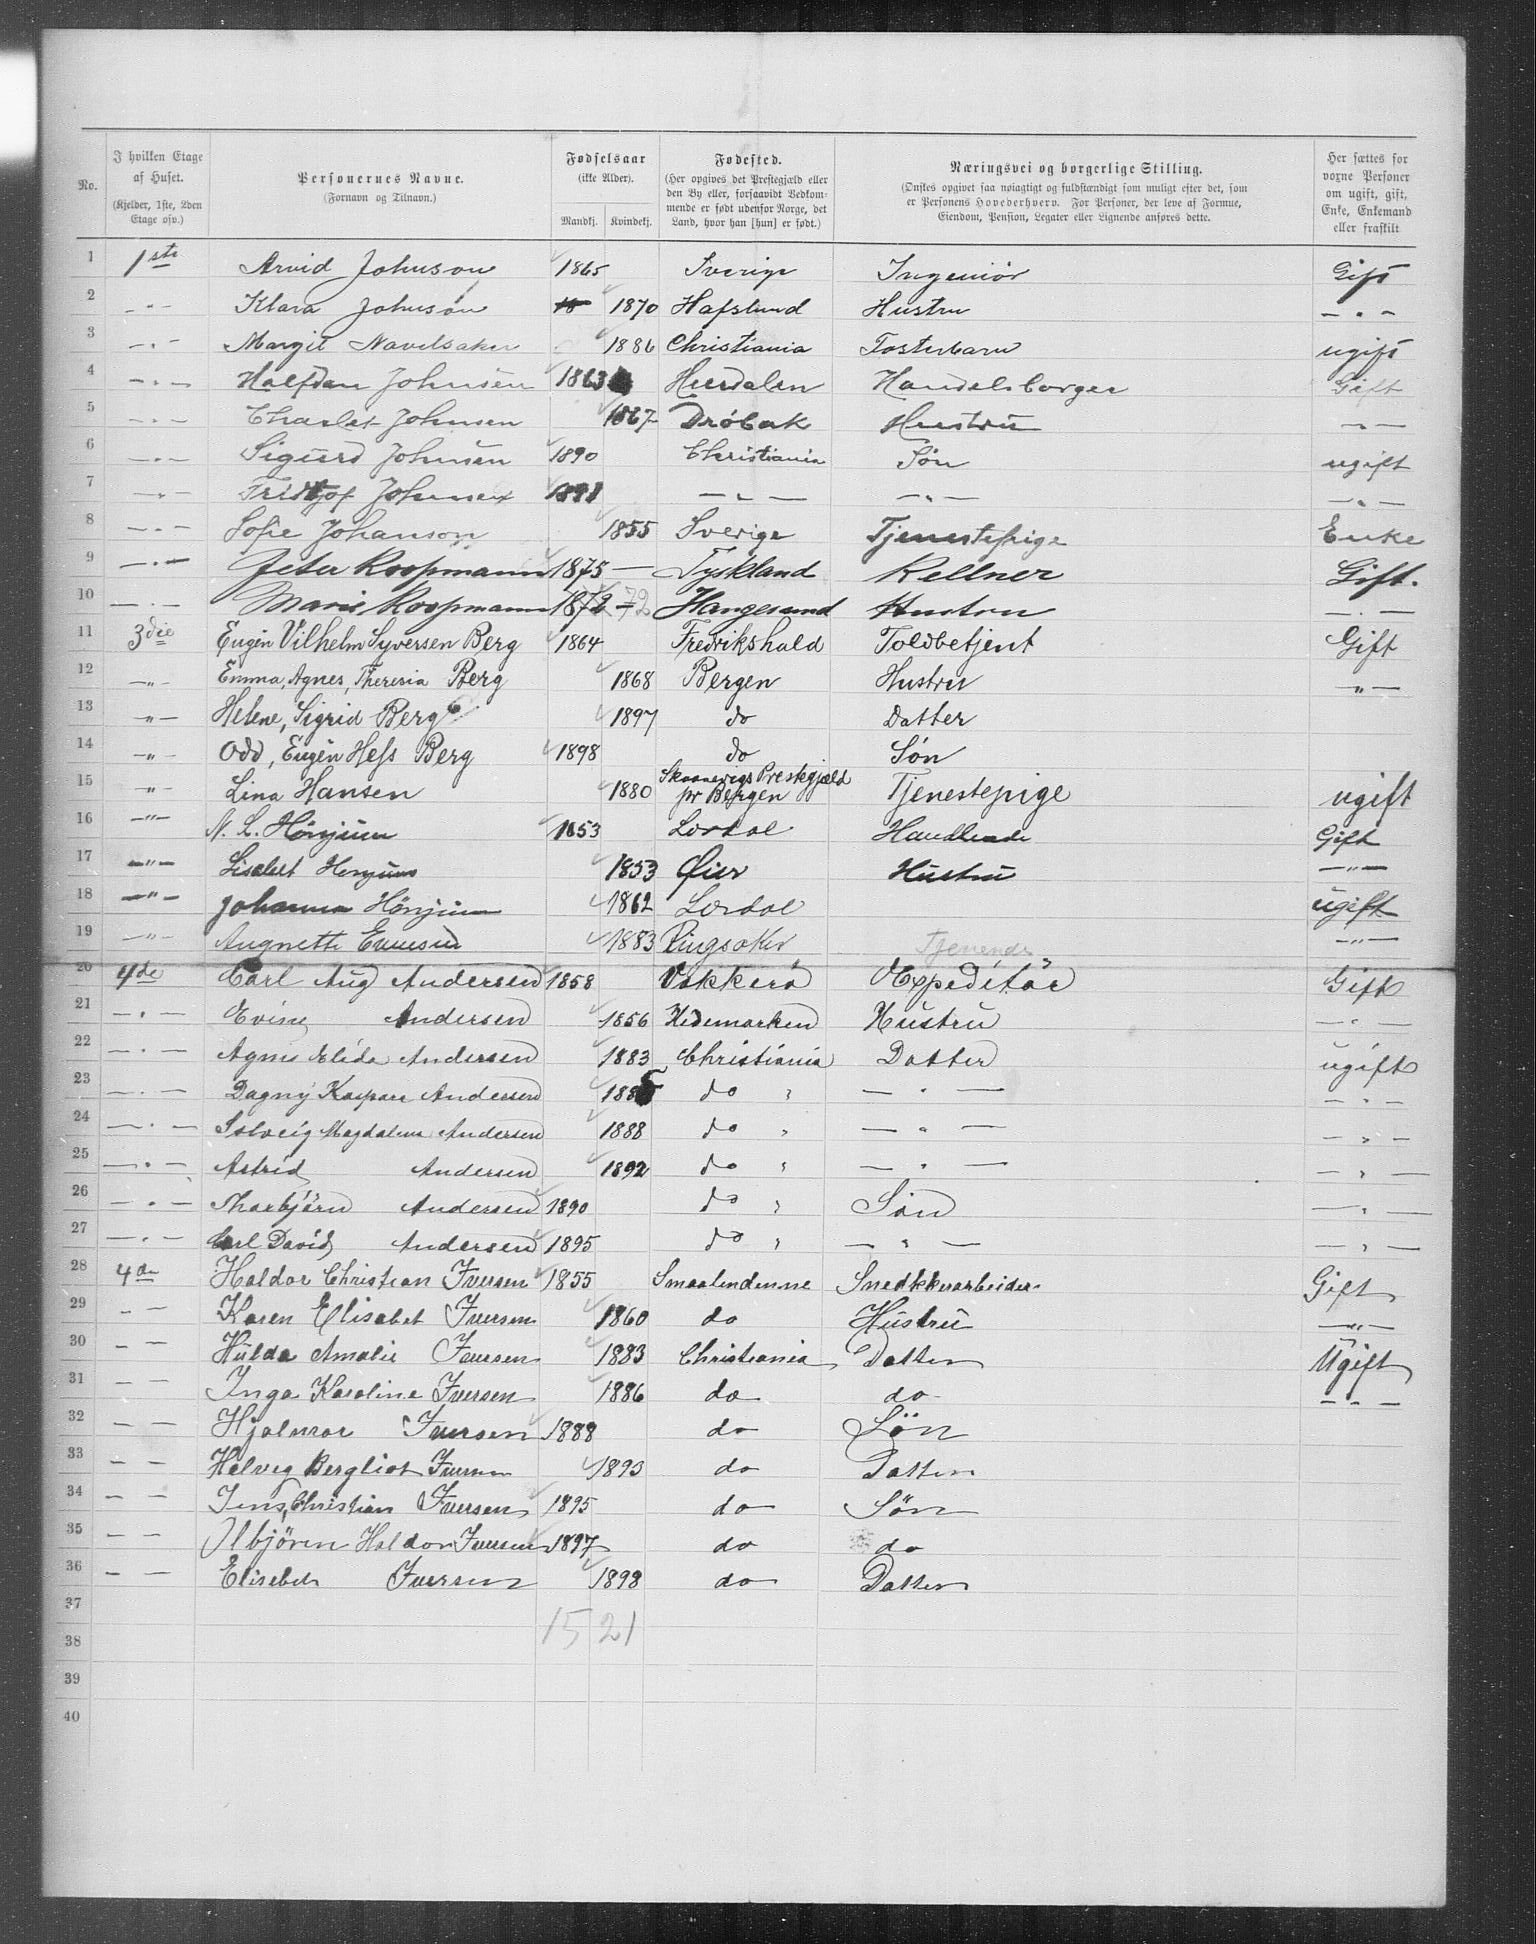 No.
I hvilken Etage af Huset.
(Kjelder, 1ste, 2den Etage osv.)
Personernes Navne.
(Fornavn og Tilnavn.)
Fødselsaar
(ikke Alder).
Mandkj. Kvindekj.
Fødested.
(Her opgives det Prestegjæld eller den By eller, forsaavidt Vedkommende er født udenfor Norge, det Land, hvor han [hun] er født.)
Næringsvei og borgerlige Stilling.
(Ønskes opgivet saa nøiagtigt og fuldstændigt som muligt efter det, som er Personens Hovederhverv. For Personer, der leve af Formue, Eiendom, Pension, Legater eller Lignende anføres dette.
Her sættes for voxne Personer om ugift, gift, Enke, Enkemand eller fraskilt
1 1ste Arvid Johnson 1865 Sverige Ingeniör Gift
2 - " - Klara Johnson 1870 Hafslund Hustru - " -
3 - " - Margit 1886 Christiania Fosterbarn ugift
4 - " - Halfdan Johnsen 1863 Hurdalen Handelsborger Gift
5 - " - Johnsen 1867 Dröbak Hustru - " -
6 - " - Sigurd Johnsen 1890 Christiania Sön ugift
7 - " - Fridtjof Johnsen - " - - " - - " -
8 - " - Sofie Johanson 1855 Sverige Tjenestepige Enke
9 - " - Peter Koopmann 1875 - Tyskland Kellner Gift.
10 - " - Marie Koopmann 1872 - 72 Haugesund Hustru - " -
11 3die Eugén Vilhelm Syversen Berg 1864 Fredrikshald Toldbetjent Gift
12 - " - Emma, Agnes, Theresia Berg 1868 Bergen Hustru - " -
13 - " - Helene, Sigrid Berg 1897 do Datter
14 - " - Odd, Eugén Hess Berg 1898 do Søn
15 - " - Lina Hansen 1880 Skaanevigs Prestegjæld pr Bergen Tjenestepige ugift
16 - " - N. L. Hönjum 1853 Lerdal Handlende Gift
17 - " - Lisabet Hönjum 1853 Øier Hustru - " -
18 - " - Johanna Hönjum 1862 Lerdal ugift
19 - " - 1883 Ringsaker Tjenende - " -
20 4de Carl Aug Andersen 1858 Vækkerö Expeditör Gift
21 - " - Andersen 1856 Hedemarken Hustru - " -
22 - " - Agnes Elida Andersen 1883 Christiania Datter ugift
23 - " - Dagny Kaspara Andersen 1885 do " - " - - " -
24 - " - Solveig Magdalena Andersen 1888 do " - " - - " -
25 - " - Astrid Andersen 1892 do " - " - - " -
26 - " - Thorbjörn Andersen 1890 do " Sön - " -
27 - " - Carl David Andersen 1895 do " - " - - " -
28 4de Haldor Christian Iversen 1855 Smaalendenne Snedkkerarbeider Gift
29 - - Karen Elisabet Iversen 1860 do Hustru - " -
30 - - Hulda Amalie Iversen 1883 Christiania Datter Ugift
31 - - Inga Karoline Iversen 1886 do do - " -
32 - - Hjalmar Iversen 1888 do Sön
33 - - Helveg Bergliot Iversen 1893 do Datter
34 - - Jens, Christian Iversen 1895 do Sön
35 - - Haldor Iversen 1897 do do
36 - - Elisabeth Iversen 1898 do Datter
37 15 21
38
39
40